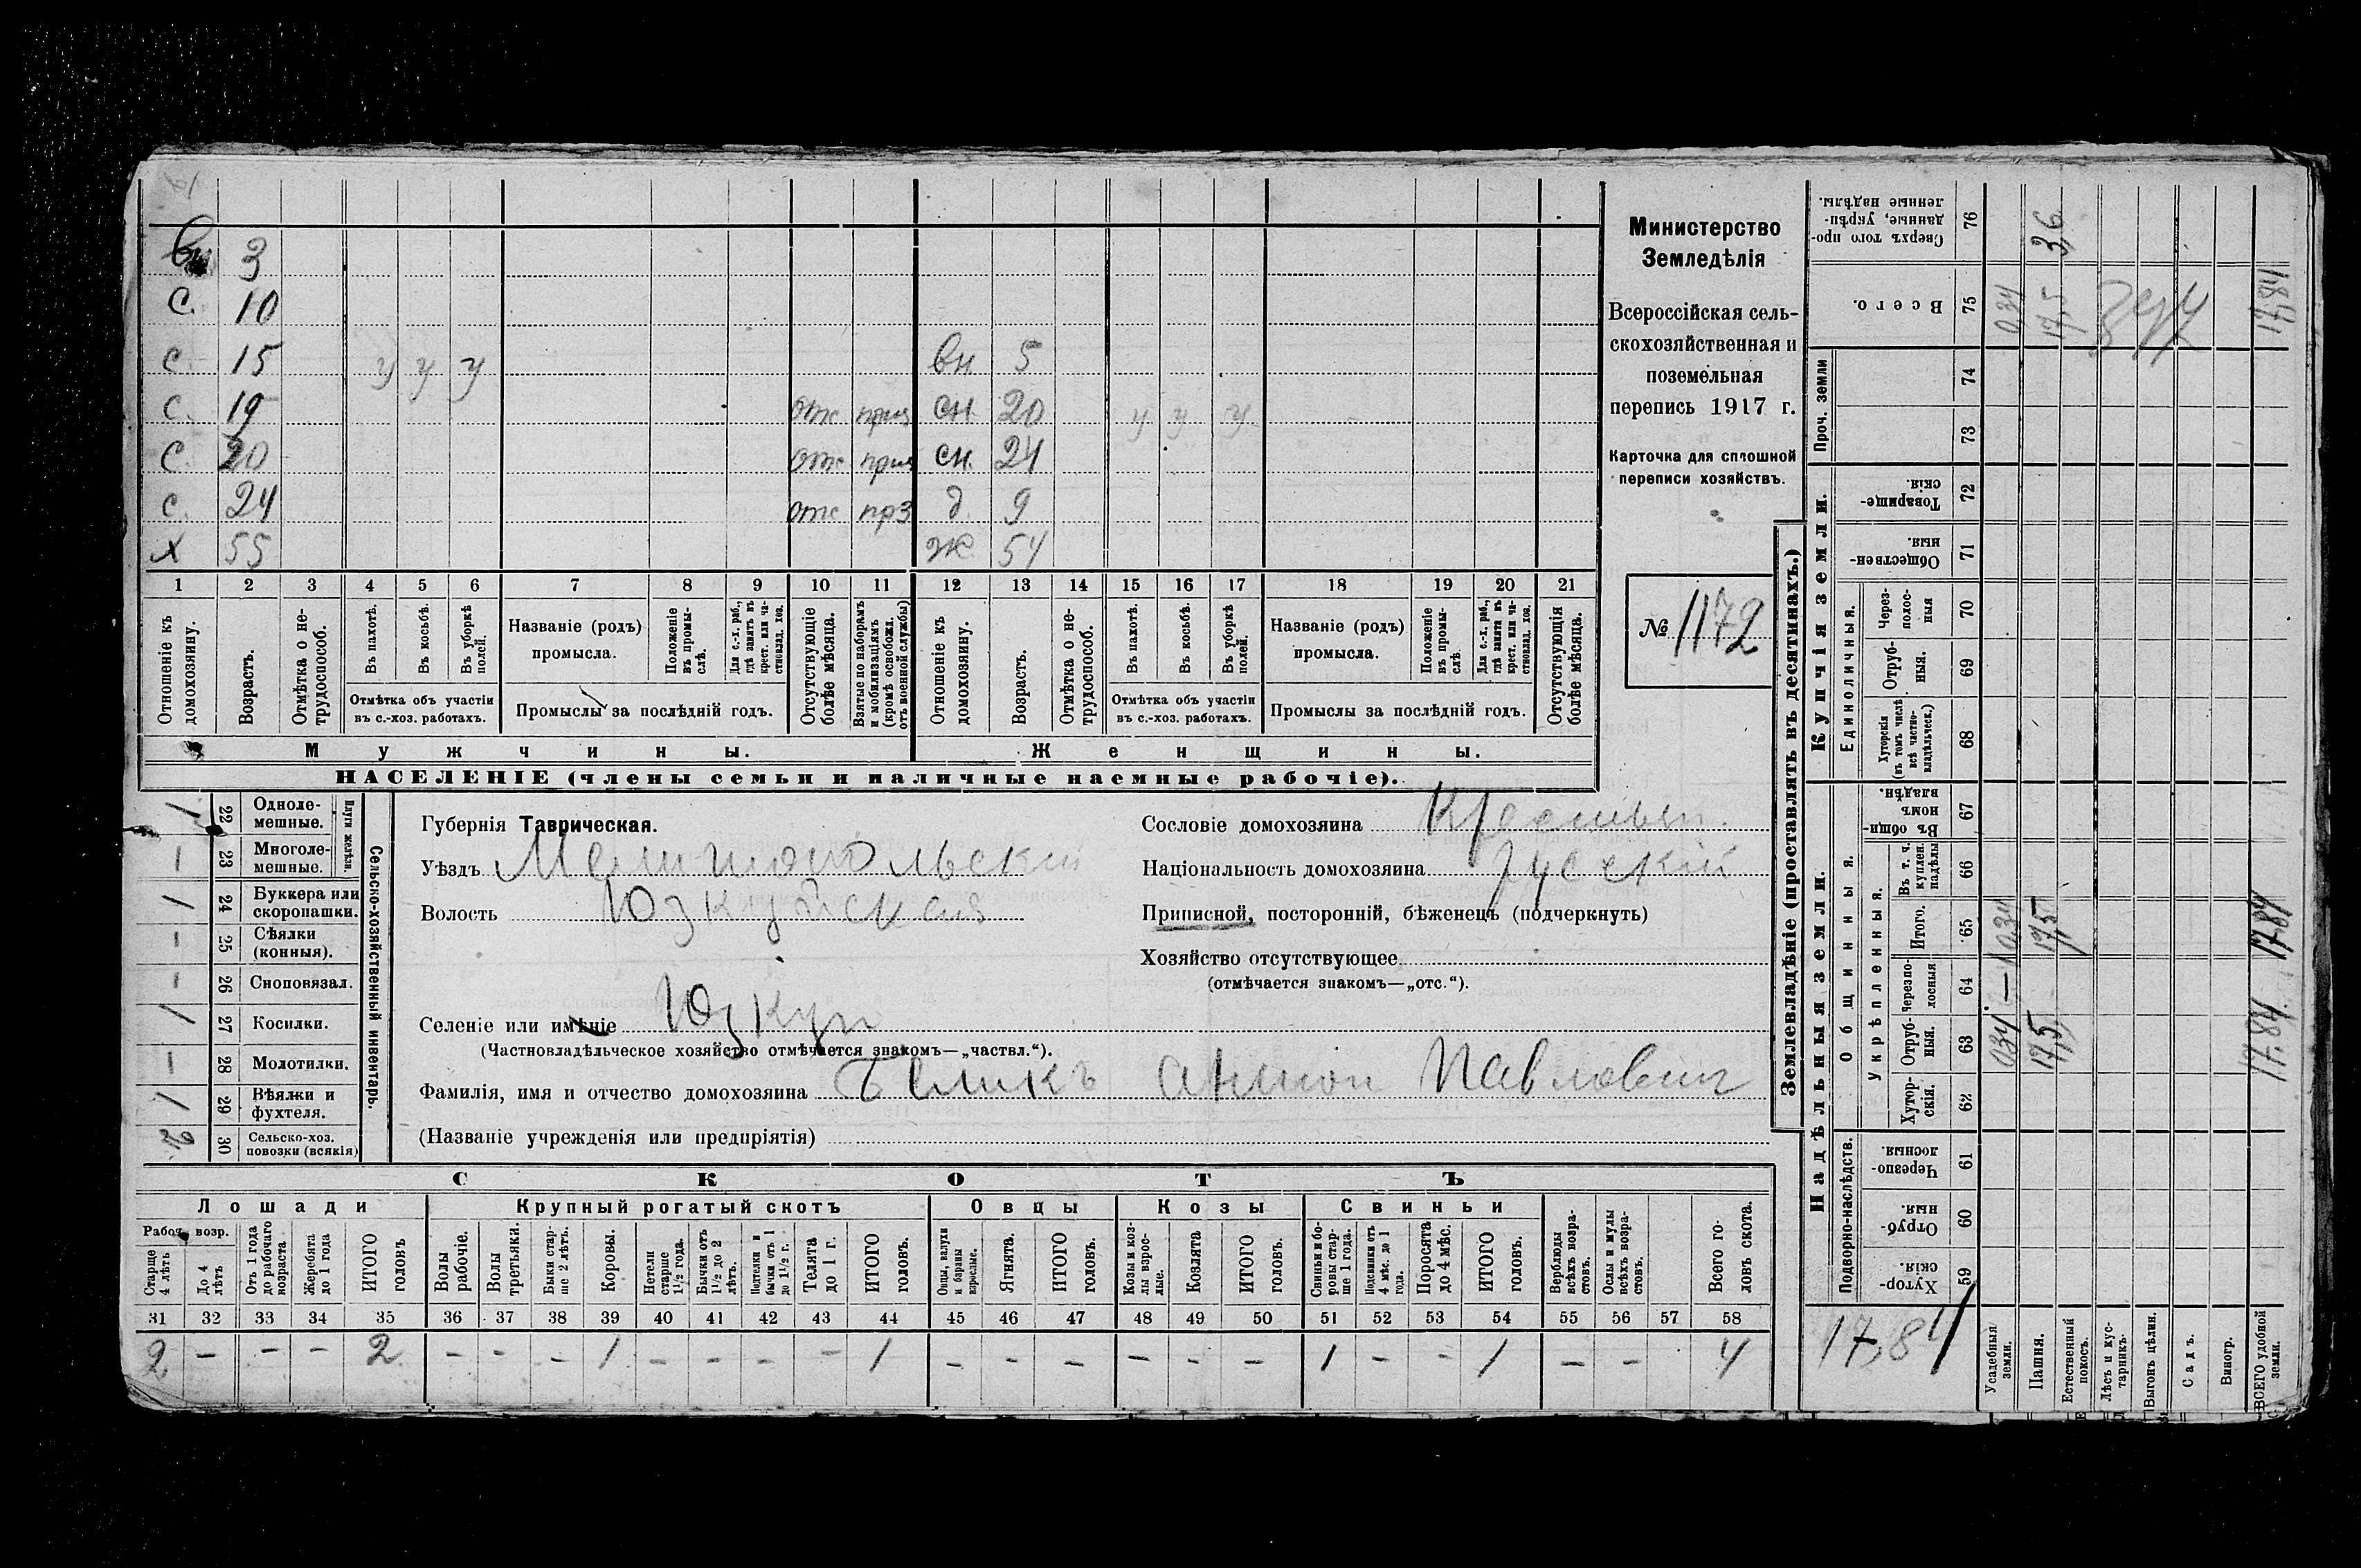 вн 3
с. 10
с 15 у у у вн 5
с. 19 отс приз сн. 20 у у у
с 20 отс приз сн. 24
с. 24 отс приз д. 9
х 55 ж. 54
1 2 3 4 5 6 7 8 9 10 11 12 13 14 15 16 17 18 19 20 21
Отношеніе къ домохозяину.
Возрастъ.
Отмѣтка о нетрудоспособ.
Въ пахотѣ.
Въ косьбѣ.
Въ уборкѣ полей.
Отмѣтка объ участіи
въ с.-хоз. работахъ.
Названіе (родъ)
промысла.
Положеніе въ промыслѣ.
Для с.-х. раб., гдѣ занятъ въ крест. или частновлад. хоз.
Промыслы за послѣдній годъ.
Отсутствующіе болѣе мѣсяца.
Взятые по наборамъ и мобилизаціямъ (кромѣ освобожд. отъ военной службы)
Отношеніе къ домохозяину.
Возрастъ.
Отмѣтка о нетрудоспособ.
Въ пахотѣ.
Въ косьбѣ.
Въ уборкѣ полей.
Отмѣтка объ участіи
въ с.-хоз. работахъ.
Названіе (родъ)
промысла.
Положеніе въ промыслѣ
Для с.-х. раб., гдѣ заняты въ крест. или частновлад. хоз.
Промыслы за послѣдній годъ.
Отсутствующія болѣе мѣсяца.
Мужчины.
Женщины.
НАСЕЛЕНІЕ (члены семьи и наличные наемные рабочіе).
Министерство
Земледѣлія
Всероссійская сель-
скохозяйственная и
поземельная
перепись 1917 г.
Карточка для сплошной
переписи хозяйствъ.
№ 1172
1 22 Одноле-
мешные.
— 23 Многоле-
мешные.
Плуги желѣзн.
1 24 Буккера или
скоропашки.
— 25 Сѣялки
(конныя).
— 26 Сноповязал.
1 27 Косилки.
— 28 Молотилки.
1 29 Вѣялки и
фухтеля.
2 30 Сельско-хоз.
повозки (всякія)
Сельско-хозяйственный инвентарь.
Губернія Таврическая.
Уѣздъ Мелитопольскій
Волость Юзкуйская
Селеніе или имѣніе Юзкуи
(Частновладѣльческое хозяйство отмѣчается знакомъ—„частвл.“).
Фамилія, имя и отчество домохозяина Беликъ Антон Павлович
(Названіе учрежденія или предпріятія)
Сословіе домохозяина Крестьян.
Національность домохозяина русскій
Приписной, посторонній, бѣженецъ (подчеркнуть)
Хозяйство отсутствующее
(отмѣчается знакомъ—„отс.“).
СКОТЪ
Лошади Крупный рогатый скотъ Овцы Козы Свиньи
Рабоч. возр.
Старше 4 лѣтъ
До 4 лѣтъ
Отъ 1 года до рабочаго возраста
Жеребята до 1 года
ИТОГО головъ
Волы рабочіе.
Волы третьяки.
Быки старше 2 лѣтъ.
Коровы.
Нетели старше 1½ года.
Бычки отъ 1½ до 2 лѣтъ.
Подтелки и бычки отъ 1 до 1½ г.
Телята до 1 г.
ИТОГО головъ.
Овцы, валухи и бараны взрослые.
Ягнята.
ИТОГО головъ.
Козы и козлы взрослые.
Козлята
ИТОГО головъ.
Свиньи и боровы старше 1 года.
Подсвинки отъ 4 мѣс. до 1 года.
Поросята до 4 мѣс.
ИТОГО головъ.
Верблюды всѣхъ возрастовъ.
Ослы и мулы всѣхъ возрастовъ.
Всего головъ скота.
31 32 33 34 35 36 37 38 39 40 41 42 43 44 45 46 47 48 49 50 51 52 53 54 55 56 57 58
2 — — — 2 — — — 1 — — — — 1 — — — — — — 1 — — 1 — — 4
Землевладѣніе (проставлять въ десятинахъ.)
Надѣльныя земли.
Купчія земли.
Проч. земли
Подворно-наслѣдств.
Общинныя.
Укрѣпленныя.
Единоличныя.
Хуторскія. 59
Отрубныя. 60
Черезполосныя. 61
Хуторскія. 62
Отрубныя. 63 0,34 17,5 17.84
Черезполосныя 64 —
Итого. 65 0,34 17,5 17.84
Въ т. ч. куплен. надѣлы 66
Въ общиномъ владѣн. 67
Хуторскія (въ томъ числѣ всѣ частновладѣльческ.) 68
Отрубныя. 69
Черезполосныя 70
Общественныя. 71
Товарищескія. 72
73
74
Всего. 75 0,34 17,5 17,84
Сверхъ того проданные, укрѣпленные надѣлы. 76 3,6
17,84
Усадебныя земли.
Пашня.
Естественный покосъ.
Лѣсъ и кустарникъ.
Выгонъ цѣлин.
Садъ.
Виногр.
ВСЕГО удобной земли.